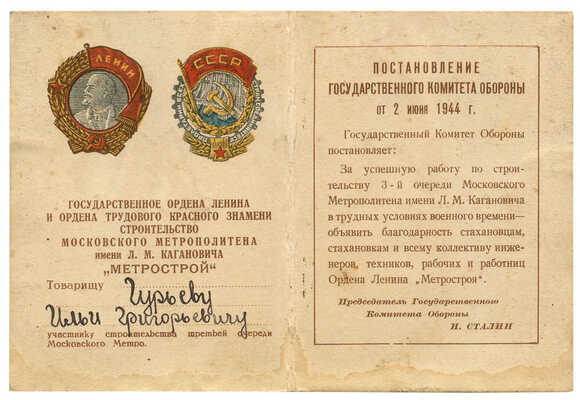 ЛЕНИН
СССР
ГОСУДАРСТВЕННОЕ ОРДЕНА ЛЕНИНА
И ОРДЕНА ТРУДОВОГО КРАСНОГО ЗНАМЕНИ
СТРОИТЕЛЬСТВО
МОСКОВСКОГО МЕТРОПОЛИТЕНА
ИМЕНИ Л. М. КАГАНОВИЧА
„МЕТРОСТРОЙ“
Товарищу Гурьеву
Ильи Григорьевичу
участнику строительства третьей очереди
Московского Метро.
ПОСТАНОВЛЕНИЕ
ГОСУДАРСТВЕННОГО КОМИТЕТА ОБОРОНЫ
ОТ 2 ИЮНЯ 1944 г.
Государственный Комитет Обороны
постановляет:
За успешную работу по строи-
тельству 3-й очереди Московского
Метрополитена имени Л. М. Кагановича
в трудных условиях военного времени—
объявить благодарность стахановцам,
стахановкам и всему коллективу инже-
неров, техников, рабочих и работниц
Ордена Ленина „Метростроя“.
Председатель Государственного
Комитета Обороны
И. СТАЛИН